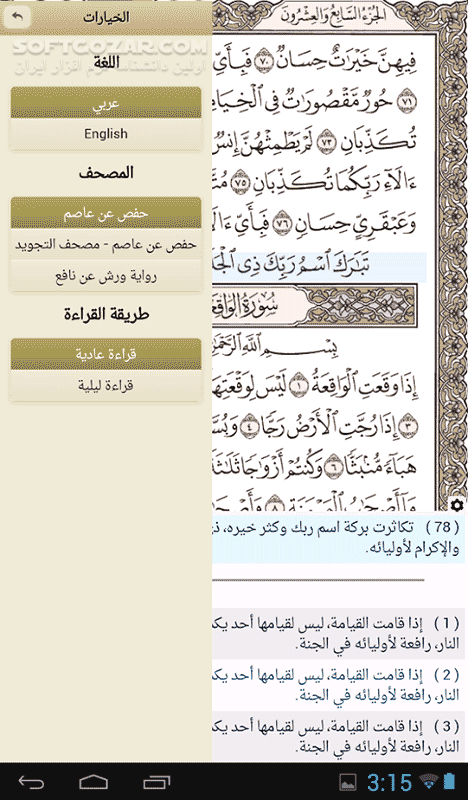 الخيارات
SOFTGOZAR.COM
اللغة
عربي
English
المصحف
حفص عن عاصم
حفص عن عاصم - مصحف التجويد
رواية ورش عن نافع
طريقة القراءة
قراءة عادية
قراءة ليلية
الجزء السابع والعشرون
فِيهِنَّ خَيْرَٰتٌ حِسَانٌ ٧٠ فَبِأَيِّ
٧١ حُورٌ مَّقْصُورَٰتٌ فِى ٱلْخِيَامِ
تُكَذِّبَانِ ٧٣ لَمْ يَطْمِثْهُنَّ إِنسٌ
ءَالَآءِ رَبِّكُمَا تُكَذِّبَانِ ٧٥
وَعَبْقَرِىٍّ حِسَانٍ ٧٦ فَبِأَىِّ ءَالَآءِ
تَبَٰرَكَ ٱسْمُ رَبِّكَ ذِى ٱلْجَ
سُورَةُ الوَاقِعَة
بِسْمِ ٱللَّهِ ٱلرَّحْمَٰ
إِذَا وَقَعَتِ ٱلْوَاقِعَةُ ١ لَيْسَ لِوَقْعَتِهَا
٣ إِذَا رُجَّتِ ٱلْأَرْضُ رَجًّا ٤ وَبُسَّ
هَبَآءً مُّنۢبَثًّا ٦ وَكُنتُمْ أَزْوَٰجًا ثَلَٰثَةً
( 78 ) تكاثرت بركة اسم ربك وكثر خيره، ذي
والإكرام لأوليائه.
( 1 ) إذا قامت القيامة، ليس لقيامها أحد يك
النار، رافعة لأوليائه في الجنة.
( 2 ) إذا قامت القيامة، ليس لقيامها أحد يك
النار، رافعة لأوليائه في الجنة.
( 3 ) إذا قامت القيامة، ليس لقيامها أحد يك
النار، رافعة لأوليائه في الجنة.
3:15